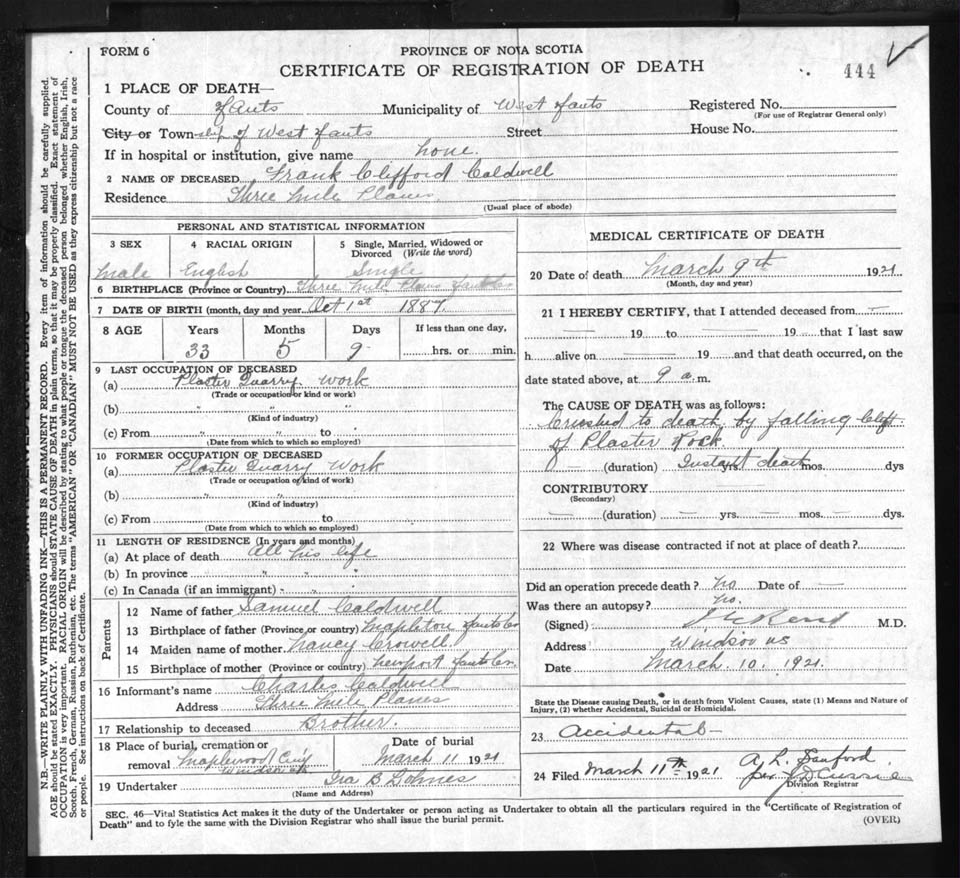 FORM 6
PROVINCE OF NOVA SCOTIA
CERTIFICATE OF REGISTRATION OF DEATH
444
1 PLACE OF DEATH—
County of Hants Municipality of West Hants Registered No.
(For use of Registrar General only)
City or Township of West Hants Street House No.
If in hospital or institution, give name none.
2 NAME OF DECEASED Frank Clifford Caldwell
Residence Three Mile Plains
(Usual place of abode)
PERSONAL AND STATISTICAL INFORMATION
3 SEX 4 RACIAL ORIGIN 5 Single, Married, Widowed or Divorced (Write the word)
Male English Single
6 BIRTHPLACE (Province or Country) Three Mile Plains Hants Co
7 DATE OF BIRTH (month, day and year Oct 1st 1887.
8 AGE Years Months Days If less than one day,
33 5 9 hrs. or min.
9 LAST OCCUPATION OF DECEASED
(a) Plaster Quarry work
(Trade or occupation or kind or work)
(b) " " "
(Kind of industry)
(c) From to
(Date from which to which so employed)
10 FORMER OCCUPATION OF DECEASED
(a) Plaster Quarry Work
(Trade or occupation or kind of work)
(b) " " "
(Kind of industry)
(c) From to
(Date from which to which so employed)
11 LENGTH OF RESIDENCE (In years and months)
(a) At place of death All his life
(b) In province " " "
(c) In Canada (if an immigrant) " "
Parents
12 Name of father Samuel Caldwell
13 Birthplace of father (Province or country) Mapleton Hants Co
14 Maiden name of mother Nancy Crowell
15 Birthplace of mother (Province or country) Newport Hants Co.
16 Informant's name Charles Caldwell
Address Three Mile Plains
17 Relationship to deceased Brother.
18 Place of burial, cremation or removal Maplewood Cem'y Windsor Date of burial March 11 1921
19 Undertaker Ira B
(Name and Address)
MEDICAL CERTIFICATE OF DEATH
20 Date of death March 9th 1921
(Month, day and year)
21 I HEREBY CERTIFY, that I attended deceased from —
— 19 to — 19 — that I last saw
h alive on — 19 — and that death occurred, on the
date stated above, at 9 a.m.
The CAUSE OF DEATH was as follows:
Crushed to death by falling Cliff
of Plaster rock.
— (duration) Instant death yrs. mos. dys
CONTRIBUTORY —
(Secondary)
— (duration) — yrs. — mos. — dys.
22 Where was disease contracted if not at place of death?
Did an operation precede death? no Date of —
Was there an autopsy? no.
(Signed) M.D.
Address Windsor NS
Date March. 10. 1921.
State the Disease causing Death, or in death from Violent Causes, state (1) Means and Nature of
Injury, (2) whether Accidental, Suicidal or Homicidal.
23 Accidental—
24 Filed March 11th 1921 A. L. Sanford
per
Division Registrar
SEC. 46—Vital Statistics Act makes it the duty of the Undertaker or person acting as Undertaker to obtain all the particulars required in the "Certificate of Registration of
Death" and to fyle the same with the Division Registrar who shall issue the burial permit.
(OVER)
N.B.—WRITE PLAINLY WITH UNFADING INK—THIS IS A PERMANENT RECORD. Every item of information should be carefully supplied.
AGE should be stated EXACTLY. PHYSICIANS should STATE CAUSE OF DEATH in plain terms, so that it may be properly classified. Exact statement of
OCCUPATION is very important. RACIAL ORIGIN will be described by stating to what people or tongue the deceased person belonged whether English, Irish,
Scotch, French, German, Russian, Ruthenian, etc. The terms "AMERICAN" OR "CANADIAN" MUST NOT BE USED as they express citizenship but not a race
or people. See instructions on back of Certificate.